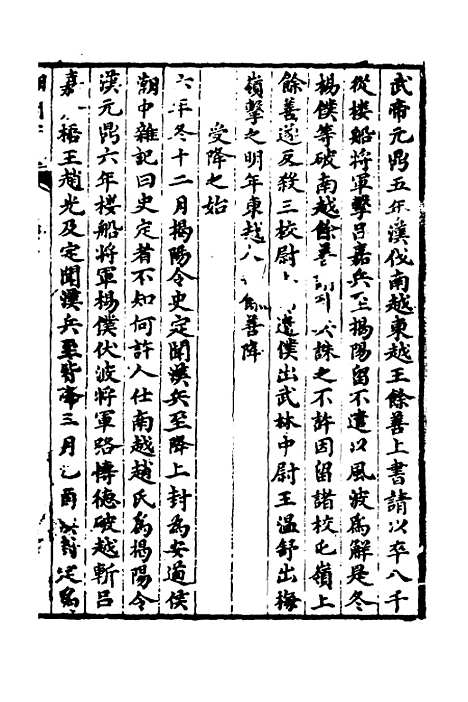 武帝元鼎五年漢伐南越東越王餘善上書請以卒八千
從樓船將軍擊呂嘉兵至揭陽留不遣以風波為解是冬
楊僕等破南越餘善誅之不許因留諸校屯嶺上
餘善遂反殺三校尉遣僕出武林中尉王温舒出梅
嶺擊之明年東越餘善降
受降之始
六年冬十二月揭陽令史定聞漢兵至降上封為安道侯
潮中雜記曰史定者不知何許人仕南越趙氏為揭陽令
漢元鼎六年楼船將軍楊僕伏波將軍路博德破越斬呂
嘉梧王趙光及定聞漢兵至皆降三月乙酉封定為